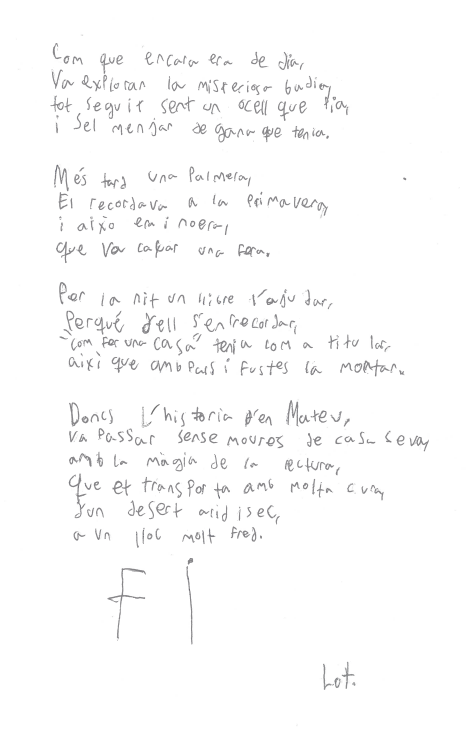 Com que encara era de dia,
Va explorar la misteriosa badia,
tot seguit sent un ocell que pia,
i sel menjar de gana que tenia.
Més tard una Palmera,
El recordava a la Primavera,
i això em i noera,
que va caçar una fera.
Per la nit un llibre l'ajudar,
Perquè d'ell s'enrecordar,
"com fer una casa" tenia com a titular,
així que amb Pals i fustes la montar.
Doncs L'historia d'en Mateu,
va Passar sense moures de casa seva,
amb la màgia de la lectura,
que et transporta amb molta cura,
d'un desert arid i sec,
a un lloc molt fred.
Fi
Lot.